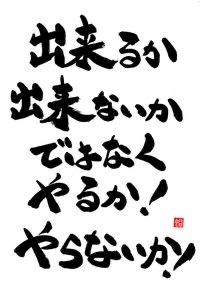 出来るか
出来ないか
ではなく
やるか!
やらないか!